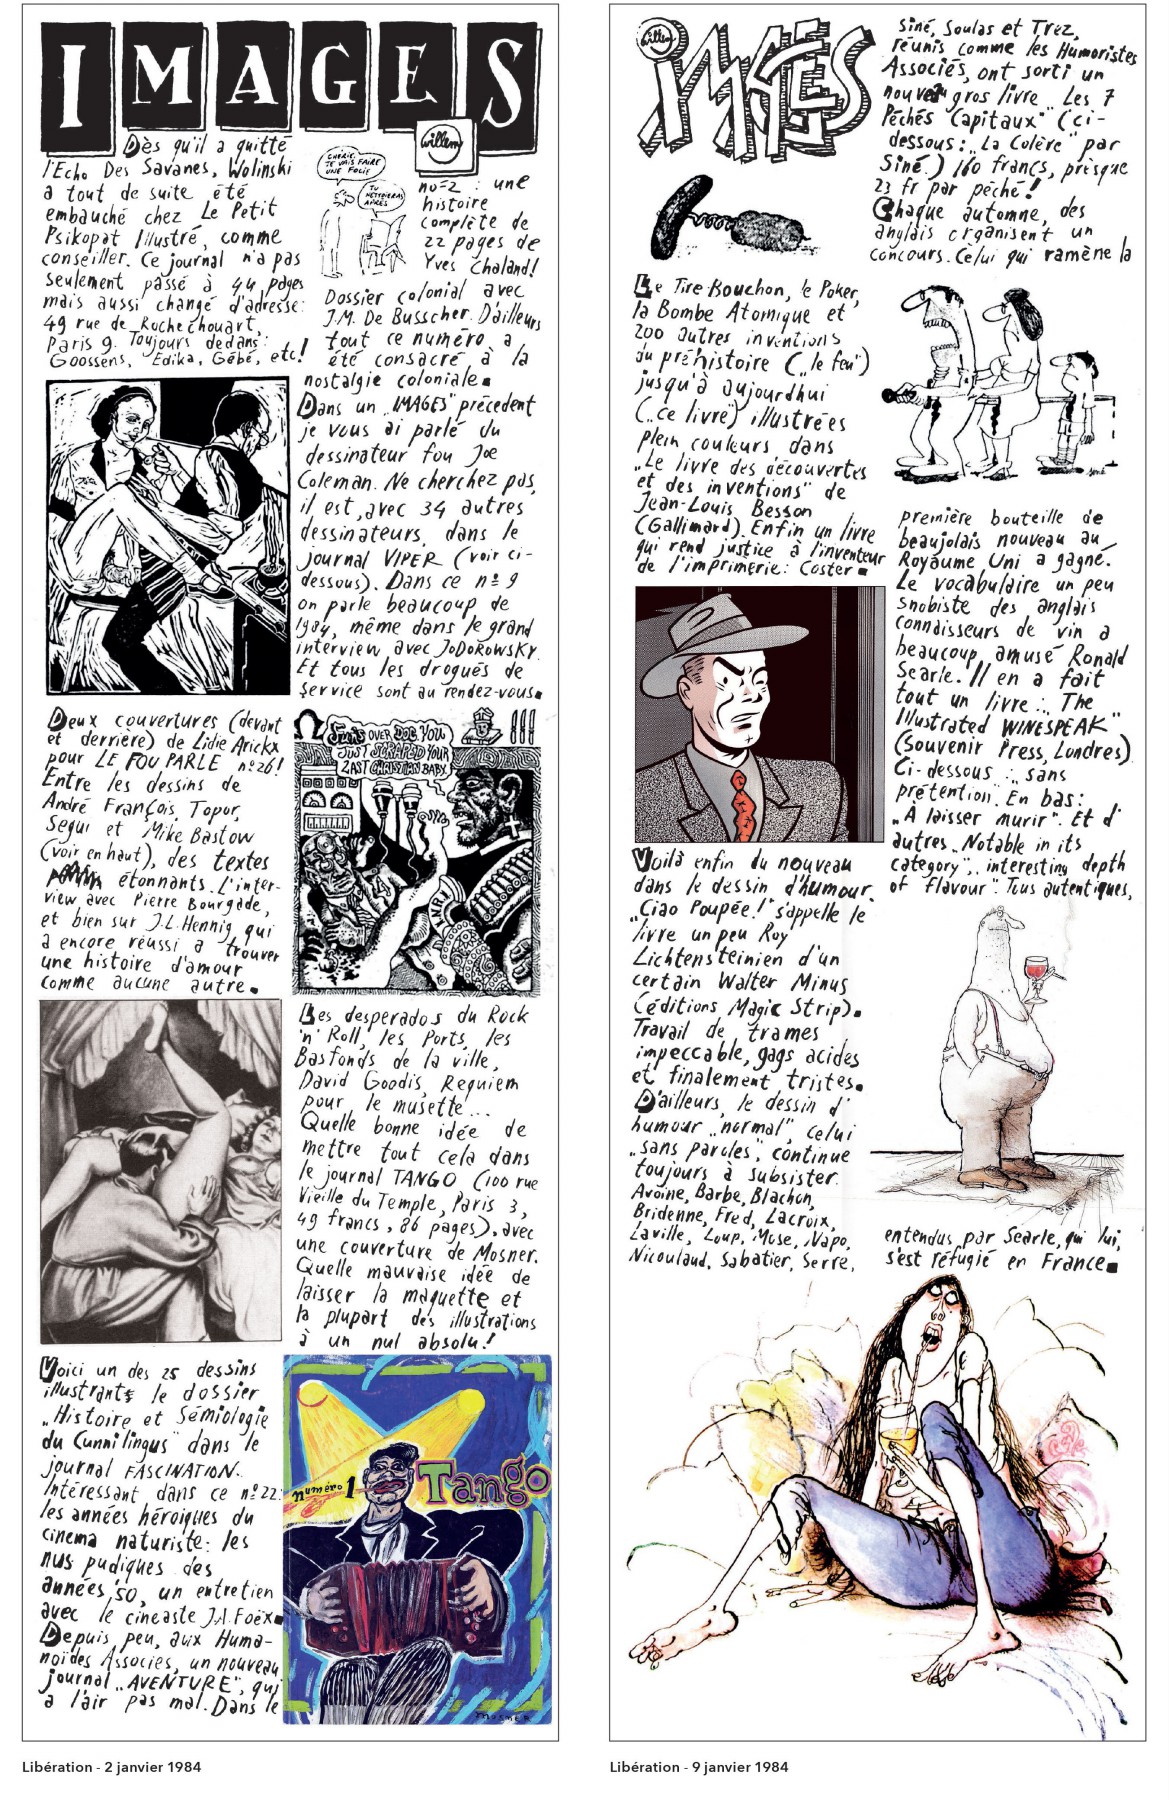 IMAGES
willem
Dès qu'il a quitté
l'Echo Des Savanes, Wolinski
a tout de suite été
embauché chez Le Petit
Psikopat Illustré, comme
conseiller. Ce journal n'a pas
seulement passé à 44 pages
mais aussi changé d'adresse:
49 rue de Rochechouart,
Paris 9. Toujours dedans:
Goossens, Edika, Gébé, etc!
Deux couvertures (devant
et derrière) de Lidie Arickx
pour LE FOU PARLE nº26!
Entre les dessins de
André François, Topor,
Segui et Mike Bastow
(voir en haut), des textes
étonnants. L'inter-
view avec Pierre Bourgade,
et bien sur J.L. Hennig, qui
a encore réussi a trouver
une histoire d'amour
comme aucune autre.
Voici un des 25 dessins
illustrants le dossier
„Histoire et Sémiologie
du Cunnilingus" dans le
journal FASCINATION.
Intéressant dans ce nº22:
les années héroïques du
cinema naturiste: les
nus pudiques des
années '50, un entretien
avec le cineaste J.A. Foëx.
Depuis peu, aux Huma-
noïdes Associés, un nouveau
journal „AVENTURE", qui
a l'air pas mal. Dans le
CHERIE,
JE VAIS FAIRE
UNE FOLIE
TU
NETTOIERAS
APRÈS
nº2 : une
histoire
complète de
22 pages de
Yves Chaland!
Dossier colonial avec
J.M. De Busscher. D'ailleurs
tout ce numéro a
été consacré à la
nostalgie coloniale.
Dans un „IMAGES" précedent
je vous ai parlé du
dessinateur fou Joe
Coleman. Ne cherchez pas,
il est, avec 34 autres
dessinateurs, dans le
journal VIPER (voir ci-
dessous). Dans ce nº 9
on parle beaucoup de
1984, même dans le grand
interview avec JODOROWSKY.
Et tous les drogués de
service sont au rendez-vous.
OVER DOC YOU
JUST SCRAPED YOUR
LAST CHRISTIAN BABY
Les desperados du Rock
'n' Roll, les Ports, les
Bas fonds de la ville,
David Goodis, Requiem
pour le musette...
Quelle bonne idée de
mettre tout cela dans
le journal TANGO (100 rue
Vieille du Temple, Paris 3,
49 francs, 86 pages), avec
une couverture de Mosner.
Quelle mauvaise idée de
laisser la maquette et
la plupart des illustrations
à un nul absolu!
numéro 1
Tango
MOSNER
Libération - 2 janvier 1984
willem
IMAGES
Le Tire-Bouchon, le Poker,
la Bombe Atomique et
200 autres inventions
du préhistoire („le feu")
jusqu'à aujourdhui
(„ce livre") illustrées
plein couleurs dans
„Le livre des découvertes
et des inventions" de
Jean-Louis Besson
(Gallimard). Enfin un livre
qui rend justice à l'inventeur
de l'imprimerie: Coster.
Voilà enfin du nouveau
dans le dessin d'humour.
„Ciao Poupée!" s'appelle le
livre un peu Roy
Lichtensteinien d'un
certain Walter Minus
(éditions Magic Strip).
Travail de trames
impeccable, gags acides
et finalement tristes.
D'ailleurs, le dessin d'
humour „normal", celui
„sans paroles", continue
toujours à subsister.
Avoine, Barbe, Blachon,
Bridenne, Fred, Lacroix,
Laville, Loup, Mose, Napo,
Nicoulaud, Sabatier, Serre,
Siné, Soulas et Trez,
réunis comme les Humoristes
Associés, ont sorti un
nouveau gros livre „Les 7
Péchés Capitaux" (ci-
dessous: „La Colère" par
Siné.) 160 francs, presque
23 fr par péché!
Chaque automne, des
anglais organisent un
concours. Celui qui ramène la
siné
première bouteille de
beaujolais nouveau au
Royaume Uni a gagné.
Le vocabulaire un peu
snobiste des anglais
connaisseurs de vin a
beaucoup amusé Ronald
Searle. Il en a fait
tout un livre: „The
Illustrated WINESPEAK"
(Souvenir Press, Londres)
Ci-dessous: „sans
prétention". En bas:
„À laisser murir". Et d'
autres „Notable in its
category", „interesting depth
of flavour". Tous autentiques,
entendus par Searle, qui lui,
s'est réfugié en France.
Libération - 9 janvier 1984